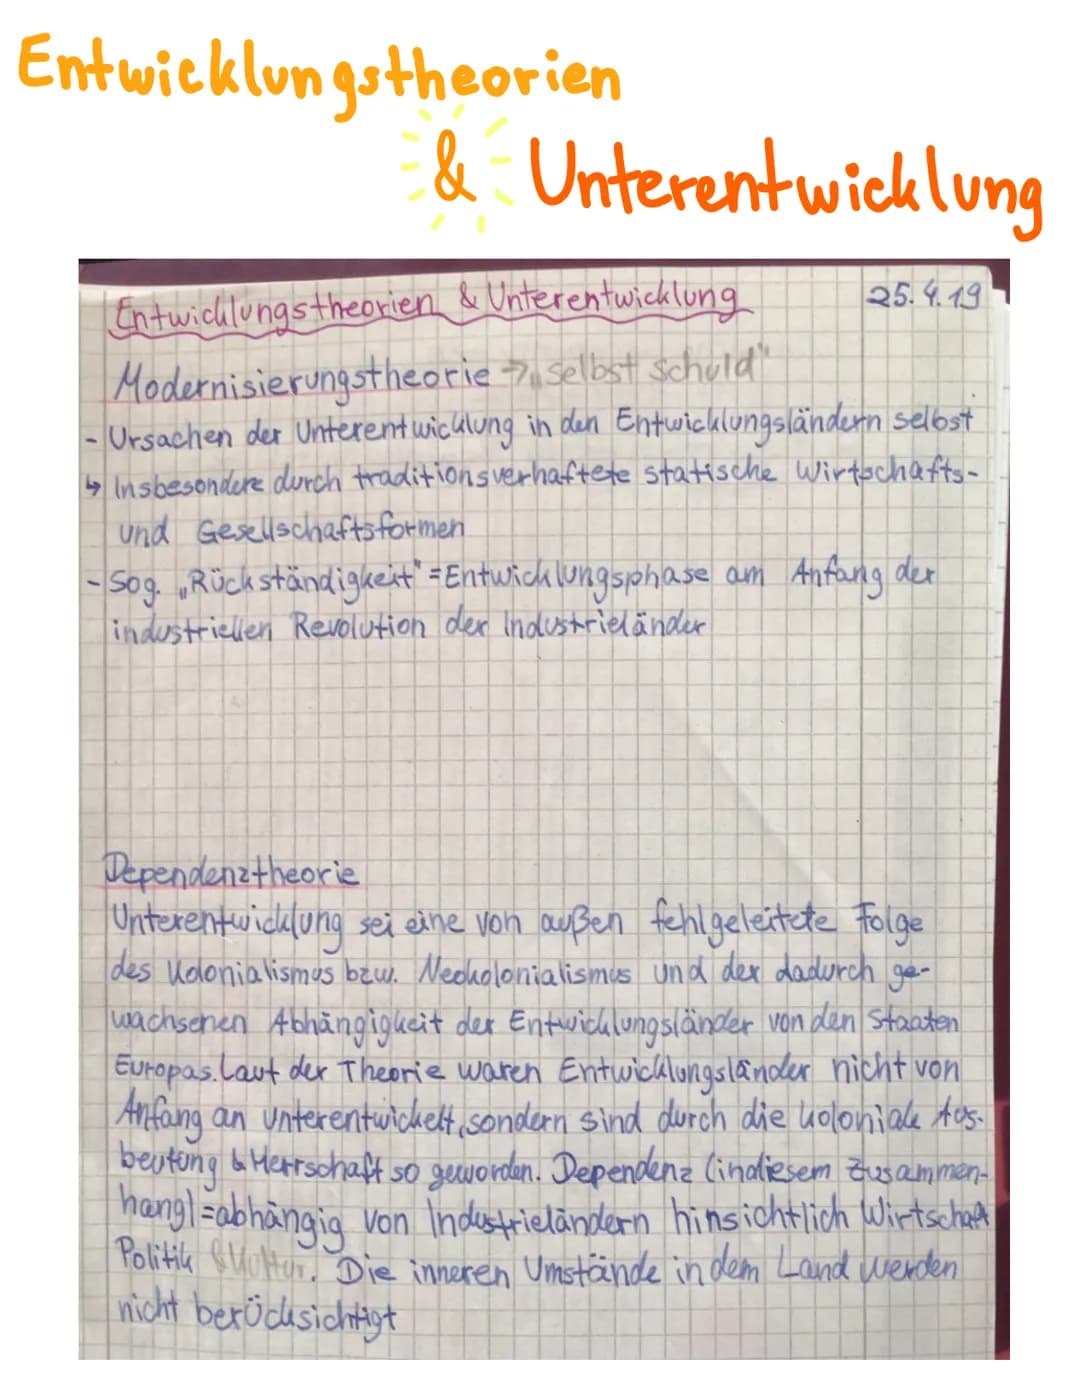 Entwicklungstheorien
& Unterentwicklung
Entwicklungstheorien & Unterentwicklung 25.4.19
Modernisierungstheorie → „selbst schuld"
- Ursachen der Unterentwicklung in den Entwicklungsländern selbst
↳ Insbesondere durch traditionsverhaftete statische Wirtschafts-
und Gesellschaftsformen
- Sog. „Rückständigkeit" = Entwicklungsphase am Anfang der
industriellen Revolution der Industrieländer
Dependenztheorie
Unterentwicklung sei eine von außen fehlgeleitete Folge
des Kolonialismus bzw. Neokolonialismus und der dadurch ge-
wachsenen Abhängigkeit der Entwicklungsländer von den Staaten
Europas. Laut der Theorie waren Entwicklungsländer nicht von
Anfang an unterentwickelt, sondern sind durch die koloniale Aus-
beutung & Herrschaft so geworden. Dependenz (in diesem Zusammen-
hang) = abhängig von Industrieländern hinsichtlich Wirtschaft
Politik & Kultur. Die inneren Umstände in dem Land werden
nicht berücksichtigt